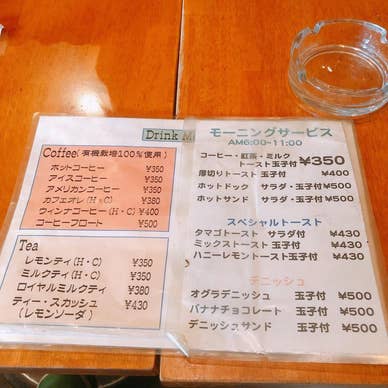 Drink M
Coffee(有機栽培100%使用)
ホットコーヒー ¥350
アイスコーヒー ¥350
アメリカンコーヒー ¥350
カフェオレ(H・C) ¥380
ウィンナコーヒー(H・C) ¥400
コーヒーフロート ¥500
Tea
レモンティ(H・C) ¥350
ミルクティ(H・C) ¥350
ロイヤルミルクティ ¥380
ティー・スカッシュ ¥430
(レモンソーダ)
モーニングサービス
AM6:00-11:00
コーヒー・紅茶・ミルク
トースト玉子付 ¥350
厚切りトースト玉子付 ¥400
ホットドック サラダ・玉子付 ¥500
ホットサンド サラダ・玉子付 ¥500
スペシャルトースト
タマゴトースト サラダ付 ¥430
ミックストースト玉子付 ¥430
ハニーレモントースト玉子付 ¥430
デニッシュ
オグラデニッシュ 玉子付 ¥500
バナナチョコレート 玉子付 ¥500
デニッシュサンド 玉子付 ¥500